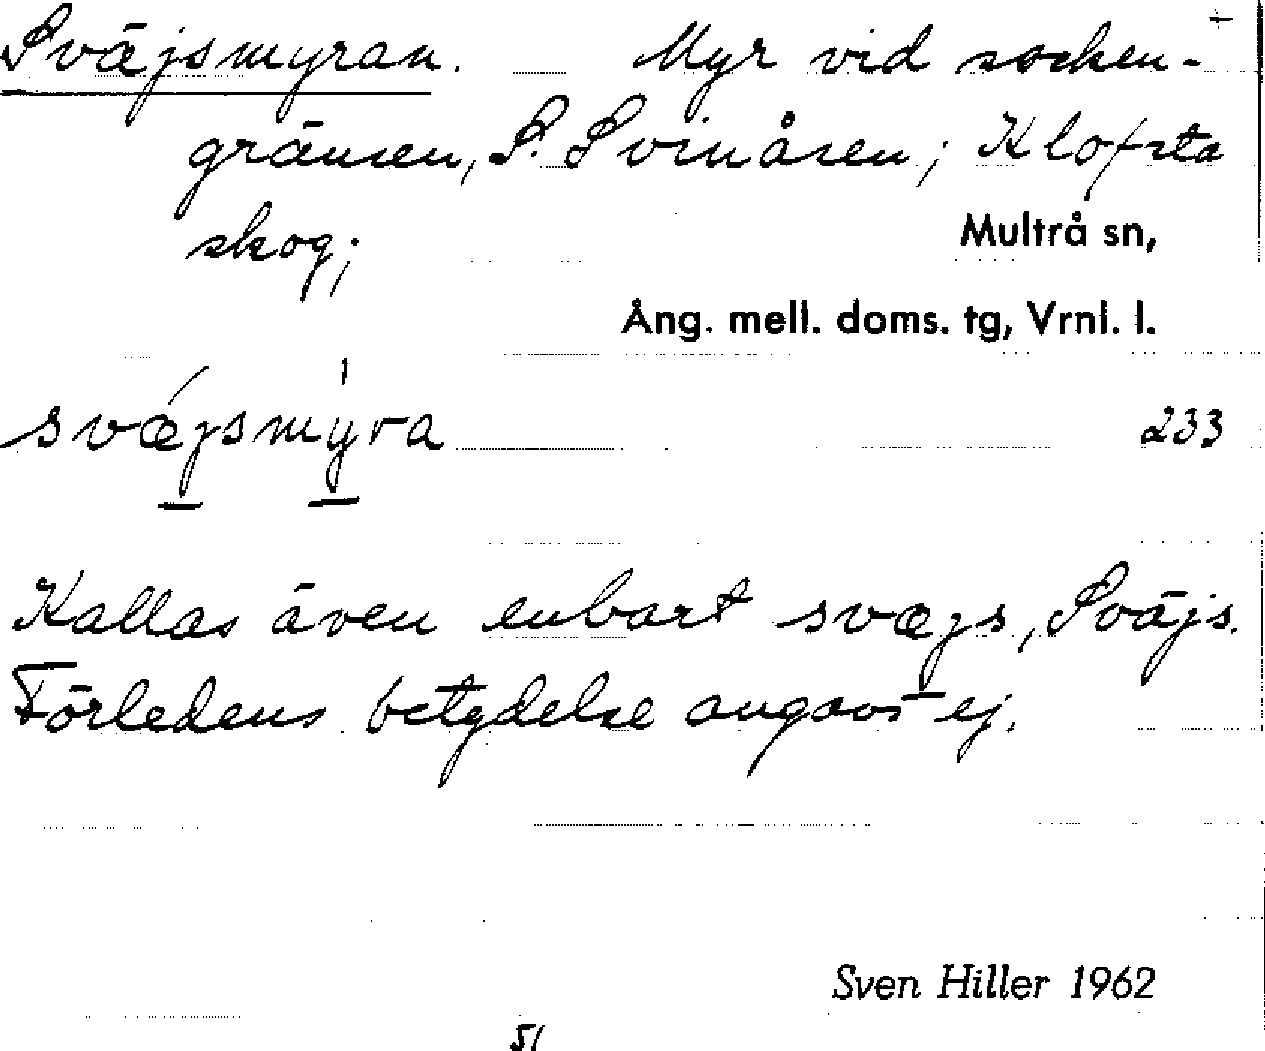 Sväjsmyran. Myr vid socken-
gränsen, S. Svinåsen; Klofsta
skog;
Multrå sn,
Ång. mell. doms. tg, Vrnl. l.
svǽjsmýra 233
Kallas även enbart svæjs, Sväjs.
Förledens betydelse angavs ej.
Sven Hiller 1962
51